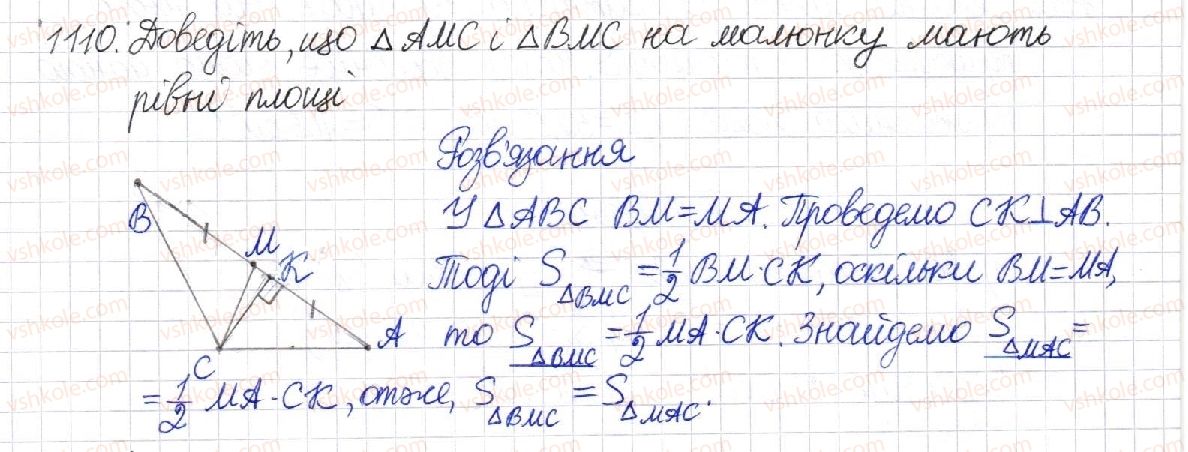 1110. Доведіть, що △AMC і △BMC на малюнку мають
рівні площі
Розв'язання
У △ABC BM=MA. Проведемо CK⊥AB.
Тоді S△BMC = 1/2 BM·CK, оскільки BM=MA,
то S△BMC = 1/2 MA·CK. Знайдемо S△MAC =
= 1/2 MA·CK, отже, S△BMC = S△MAC.
B
M
K
A
C
vshkole.com